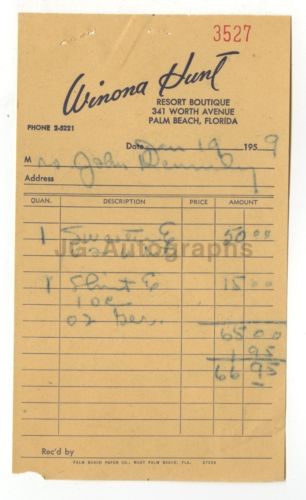 3527
Winona Hunt
RESORT BOUTIQUE
341 WORTH AVENUE
PALM BEACH, FLORIDA
PHONE 2-5221
Date Jan 19 1959
Mrs John Kennedy
Address
QUAN. DESCRIPTION PRICE AMOUNT
1 50.00
JG Autographs
1 Shirt E 15.00
10c
02
65 00
1 95
66 95
Rec'd by
PALM BEACH PAPER CO., WEST PALM BEACH, FLA.